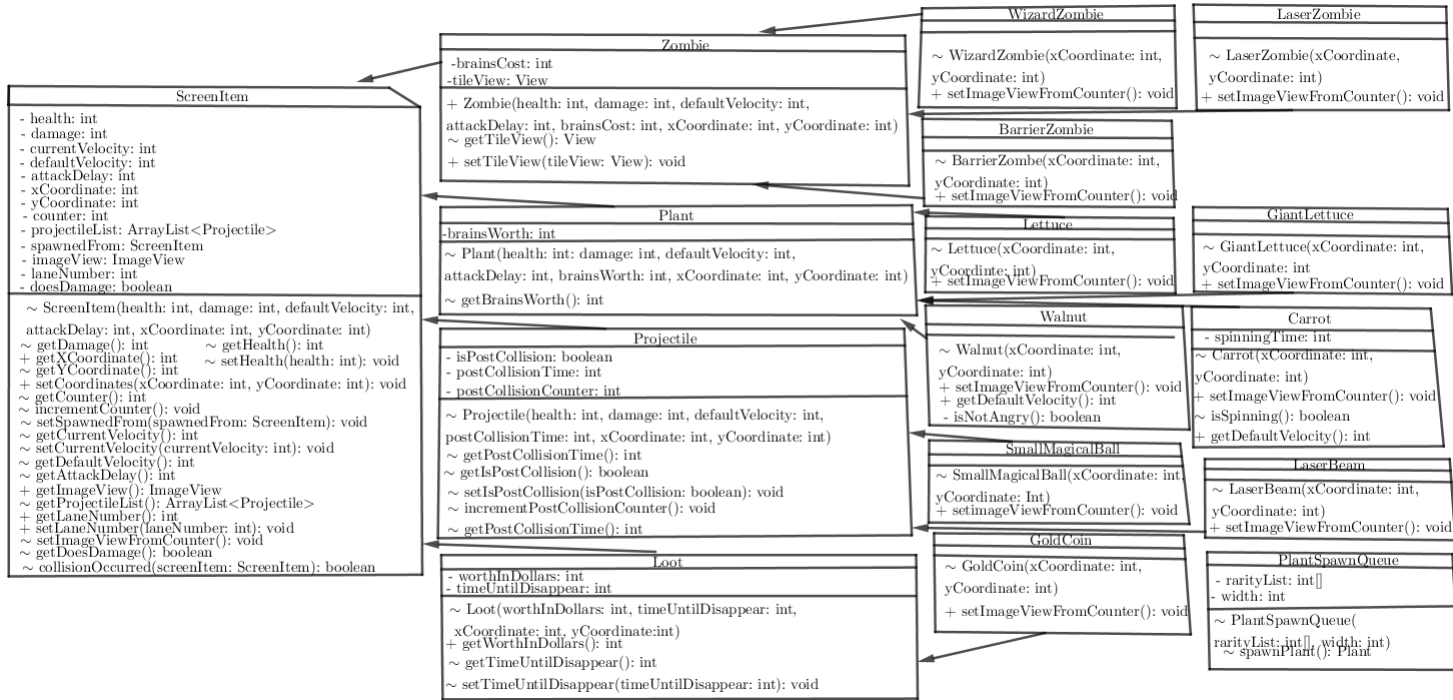 ScreenItem
- health: int
- damage: int
- currentVelocity: int
- defaultVelocity: int
- attackDelay: int
- xCoordinate: int
- yCoordinate: int
- counter: int
- projectileList: ArrayList<Projectile>
- spawnedFrom: ScreenItem
- imageView: ImageView
- laneNumber: int
- doesDamage: boolean
~ ScreenItem(health: int, damage: int, defaultVelocity: int,
attackDelay: int, xCoordinate: int, yCoordinate: int)
~ getDamage(): int ~ getHealth(): int
+ getXCoordinate(): int ~ setHealth(health: int): void
~ getYCoordinate(): int
+ setCoordinates(xCoordinate: int, yCoordinate: int): void
~ getCounter(): int
~ incrementCounter(): void
~ setSpawnedFrom(spawnedFrom: ScreenItem): void
~ getCurrentVelocity(): int
~ setCurrentVelocity(currentVelocity: int): void
~ getDefaultVelocity(): int
~ getAttackDelay(): int
+ getImageView(): ImageView
~ getProjectileList(): ArrayList<Projectile>
+ getLaneNumber(): int
+ setLaneNumber(laneNumber: int): void
~ setImageViewFromCounter(): void
~ getDoesDamage(): boolean
~ collisionOccurred(screenItem: ScreenItem): boolean
Zombie
-brainsCost: int
-tileView: View
+ Zombie(health: int, damage: int, defaultVelocity: int,
attackDelay: int, brainsCost: int, xCoordinate: int, yCoordinate: int)
~ getTileView(): View
+ setTileView(tileView: View): void
Plant
-brainsWorth: int
~ Plant(health: int: damage: int, defaultVelocity: int,
attackDelay: int, brainsWorth: int, xCoordinate: int, yCoordinate: int)
~ getBrainsWorth(): int
Projectile
- isPostCollision: boolean
- postCollisionTime: int
- postCollisionCounter: int
~ Projectile(health: int, damage: int, defaultVelocity: int,
postCollisionTime: int, xCoordinate: int, yCoordinate: int)
~ getPostCollisionTime(): int
~ getIsPostCollision(): boolean
~ setIsPostCollision(isPostCollision: boolean): void
~ incrementPostCollisionCounter(): void
~ getPostCollisionTime(): int
Loot
- worthInDollars: int
- timeUntilDisappear: int
~ Loot(worthInDollars: int, timeUntilDisappear: int,
xCoordinate: int, yCoordinate:int)
+ getWorthInDollars(): int
~ getTimeUntilDisappear(): int
~ setTimeUntilDisappear(timeUntilDisappear: int): void
WizardZombie
~ WizardZombie(xCoordinate: int,
yCoordinate: int)
+ setImageViewFromCounter(): void
LaserZombie
~ LaserZombie(xCoordinate,
yCoordinate: int)
+ setImageViewFromCounter(): void
BarrierZombie
~ BarrierZombe(xCoordinate: int,
yCoordinate: int)
+ setImageViewFromCounter(): void
Lettuce
~ Lettuce(xCoordinate: int,
yCoordinte: int)
+ setImageViewFromCounter(): void
GiantLettuce
~ GiantLettuce(xCoordinate: int,
yCoordinate: int
+ setImageViewFromCounter(): void
Walnut
~ Walnut(xCoordinate: int,
yCoordinate: int)
+ setImageViewFromCounter(): void
+ getDefaultVelocity(): int
- isNotAngry(): boolean
Carrot
- spinningTime: int
~ Carrot(xCoordinate: int,
yCoordinate: int)
+ setImageViewFromCounter(): void
~ isSpinning(): boolean
+ getDefaultVelocity(): int
SmallMagicalBall
~ SmallMagicalBall(xCoordinate: int,
yCoordinate: Int)
+ setimageViewFromCounter(): void
LaserBeam
~ LaserBeam(xCoordinate: int,
yCoordinate: int)
+ setImageViewFromCounter(): void
GoldCoin
~ GoldCoin(xCoordinate: int,
yCoordinate: int)
+ setImageViewFromCounter(): void
PlantSpawnQueue
- rarityList: int[]
- width: int
~ PlantSpawnQueue(
rarityList: int[], width: int)
~ spawnPlant(): Plant